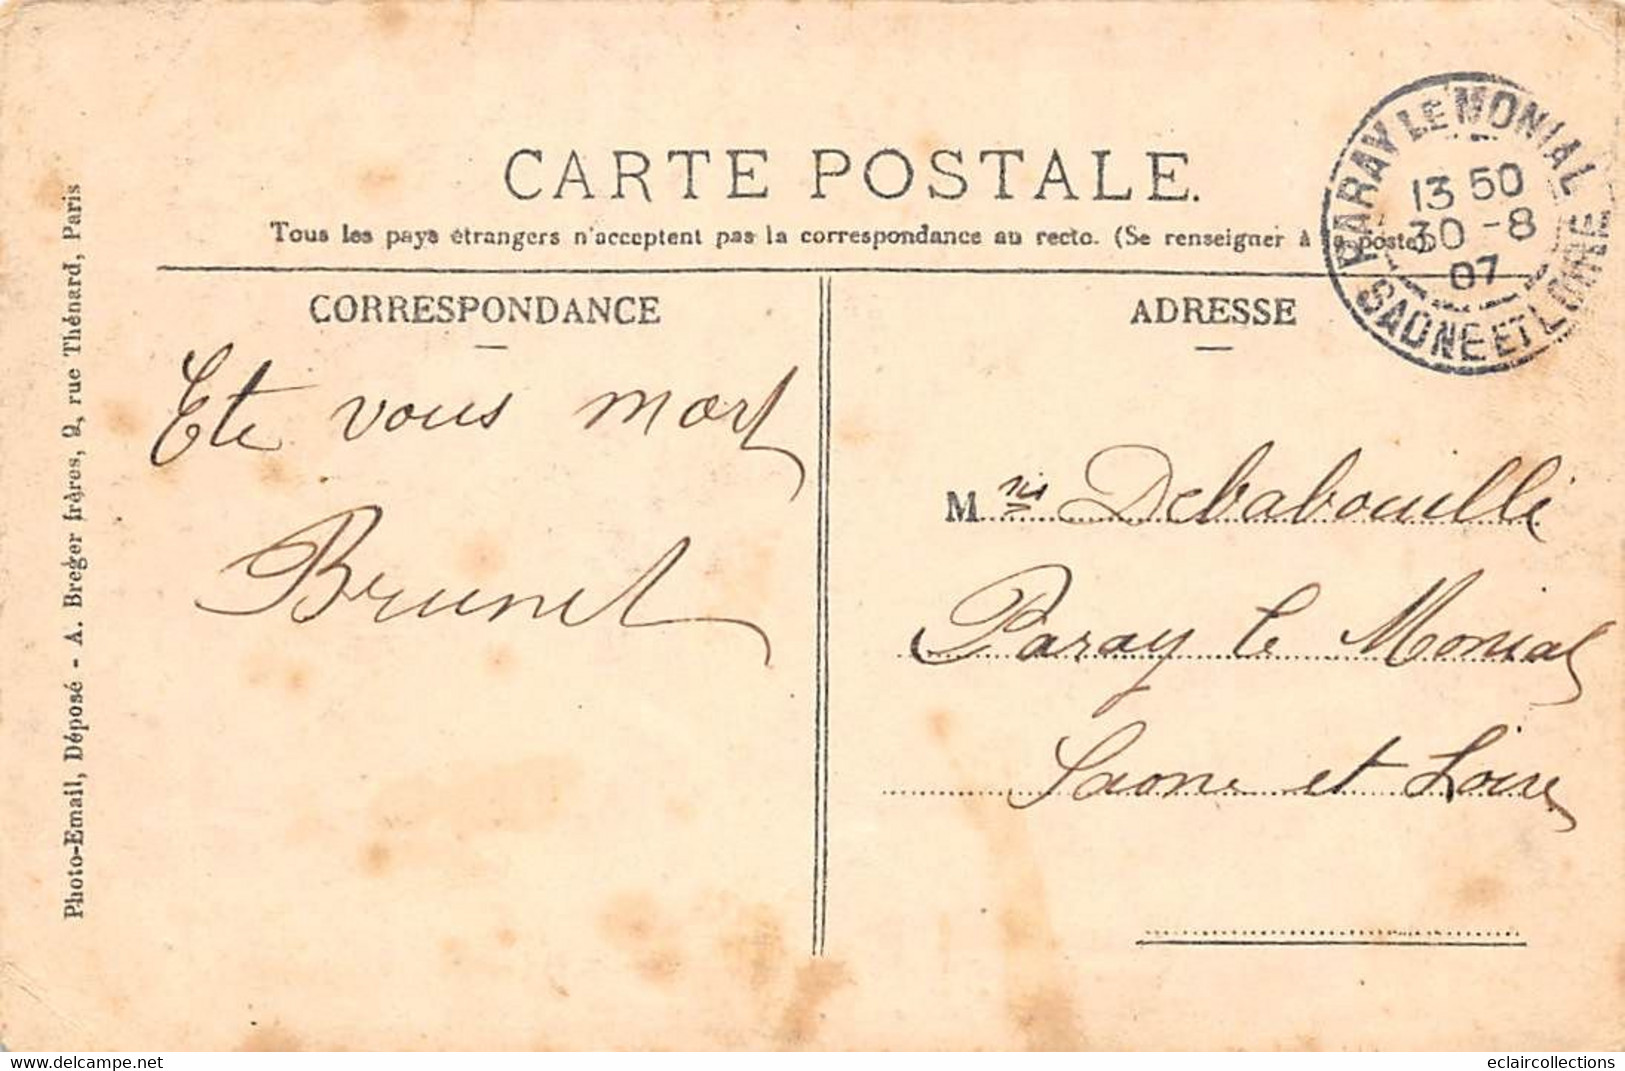 CARTE POSTALE.
Tous les pays étrangers n'acceptent pas la correspondance au recto. (Se renseigner à la poste).
PARAY LE MONIAL
13 50
30 -8
07
SAONE ET LOIRE
CORRESPONDANCE
Ete vous mort
Brunet
ADRESSE
Mris Debabouille
Paray le Monial
Saone et Loire
Photo-Email, Déposé - A. Breger frères, 9, rue Thénard, Paris
delcampe.net
eclaircollections